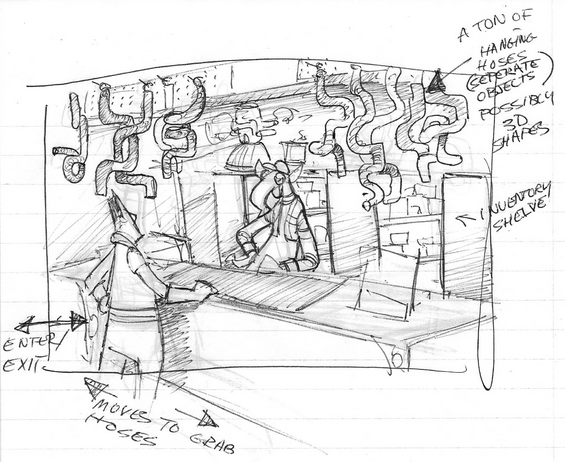 A TON OF
HANGING
HOSES
(SEPERATE
OBJECTS)
POSSIBLY
3D
SHAPES
INVENTORY
SHELVE
ENTER/
EXIT
MOVES TO GRAB
HOSES